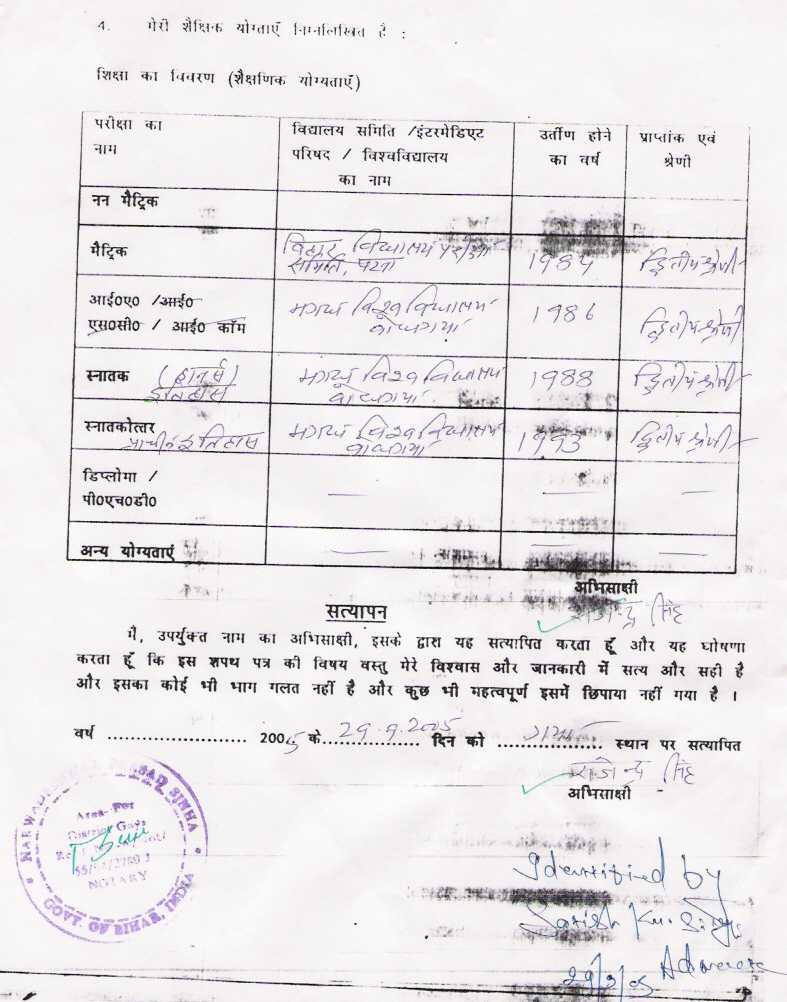 4. मेरी शैक्षिक योग्ताएँ निम्नलिखित है :
शिक्षा का विवरण (शैक्षणिक योग्यताएँ)
परीक्षा का नाम
विद्यालय समिति /इंटरमेडिएट परिषद / विश्वविद्यालय का नाम
उर्तीण होने का वर्ष
प्राप्तांक एवं श्रेणी
नन मैट्रिक
मैट्रिक बिहार विद्यालय परीक्षा समिति, पटना 1984 द्वितीय श्रेणी
आई०ए० /आई०
एस०सी० / आई० कॉम मगध विश्व विद्यालय बोधगया 1986 द्वितीय श्रेणी
स्नातक (हानर्स) इतिहास मगध विश्व विद्यालय बोधगया 1988 द्वितीय श्रेणी
स्नातकोत्तर प्राचीन इतिहास मगध विश्व विद्यालय बोधगया 1993 द्वितीय श्रेणी
डिप्लोमा /
पी०एच०डी० — — —
अन्य योग्यताएं — — —
अभिसाक्षी
राजेन्द्र सिंह
सत्यापन
मैं, उपर्युक्त नाम का अभिसाक्षी, इसके द्वारा यह सत्यापित करता हूँ और यह घोषणा
करता हूँ कि इस शपथ पत्र की विषय वस्तु मेरे विश्वास और जानकारी में सत्य और सही है
और इसका कोई भी भाग गलत नहीं है और कुछ भी महत्वपूर्ण इसमें छिपाया नहीं गया है ।
वर्ष ........................ 2005 के 29.9.2005 दिन को गया स्थान पर सत्यापित
राजेन्द्र सिंह
अभिसाक्षी
NARWADESHWAR PRASAD SINHA
Area-For
District Gaya
NOTARY
GOVT. OF BIHAR, INDIA
Identified by
Satish Ku. Singh
Advocate
29/9/05